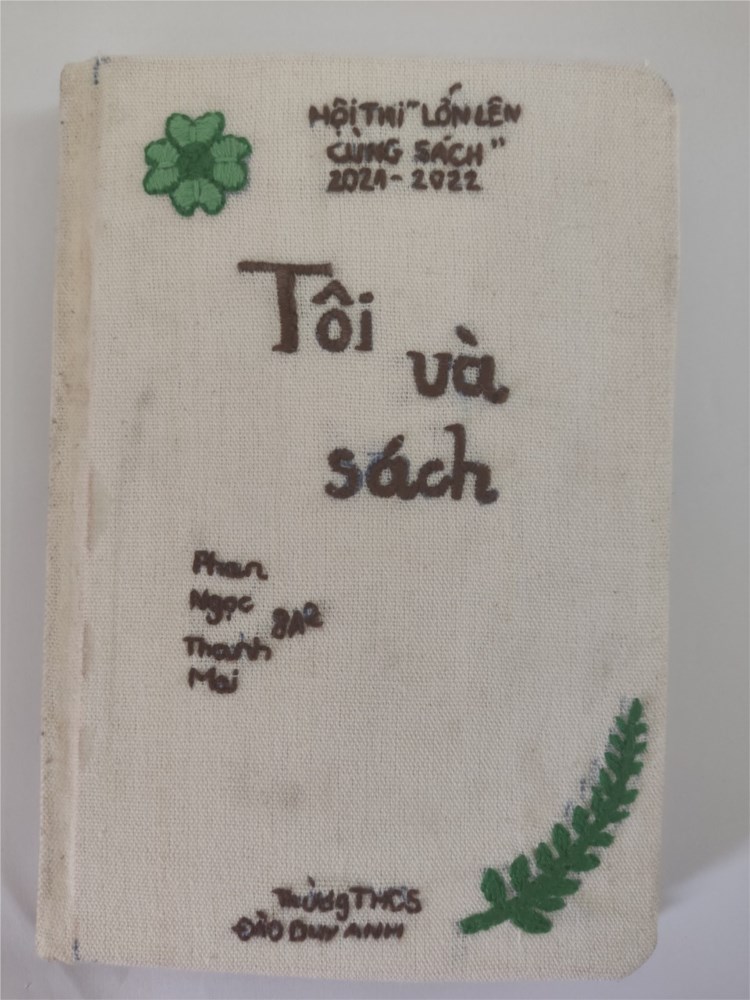 HỘI THI "LỚN LÊN
CÙNG SÁCH"
2021-2022
Tôi
và
sách
Phan
Ngọc
8A2
Thanh
Mai
Trường THCS
ĐÀO DUY ANH